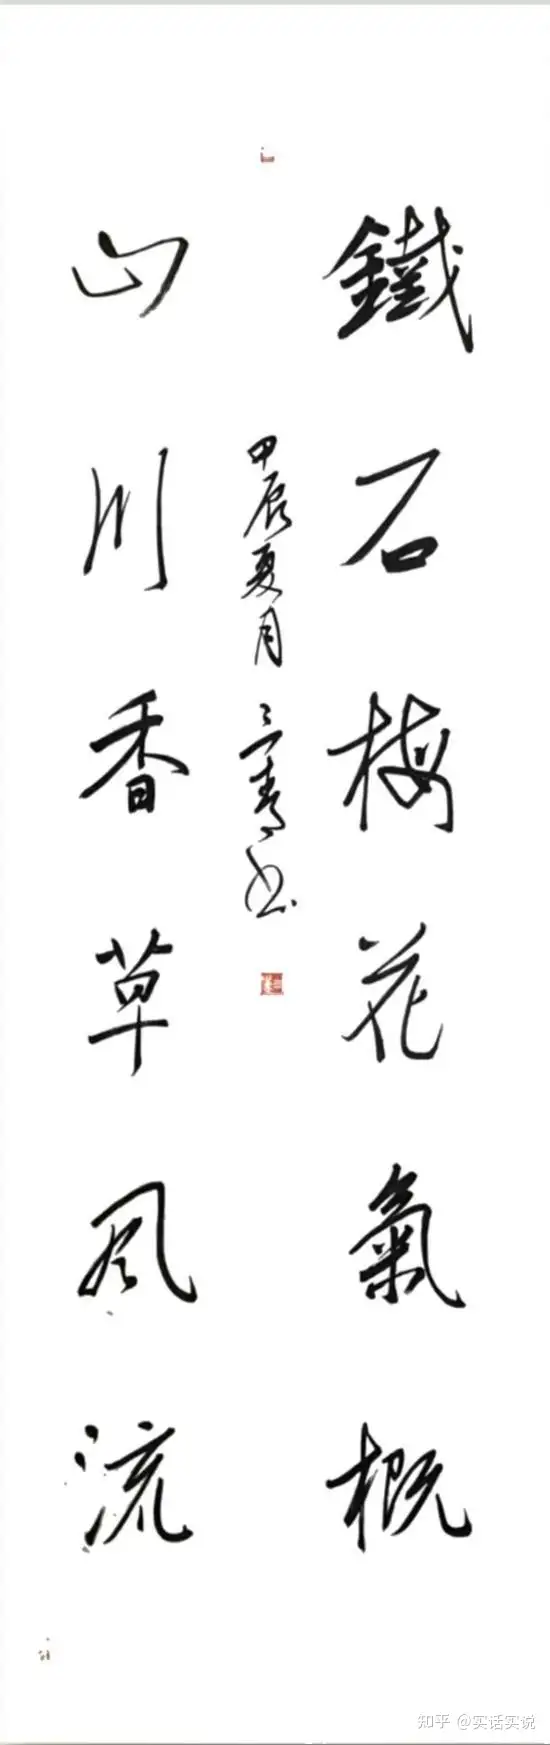 鐵石梅花氣概
山川香草風流
甲辰夏月 三青书
知乎 @实话实说